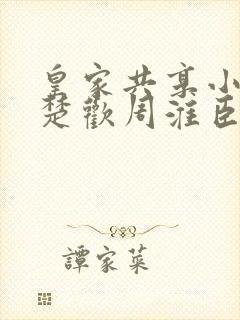 皇家共享小
楚歡周淮臣
譚家菜